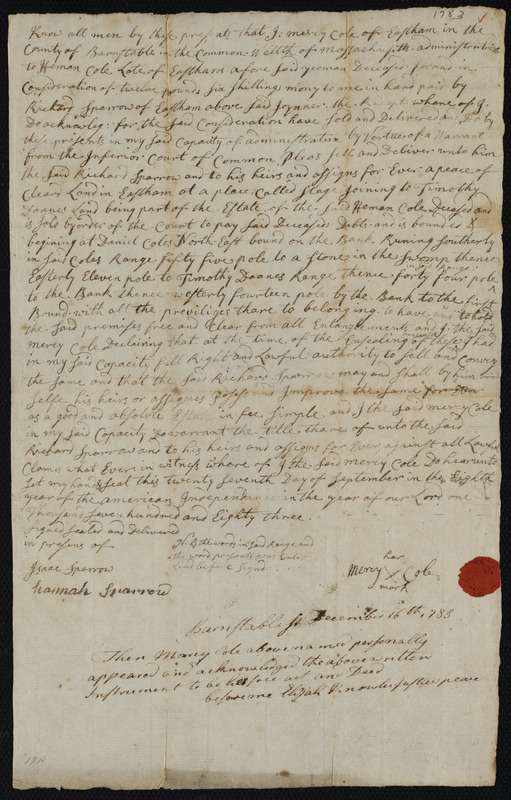 1783
Know all men by these presents that I: mercy Cole of Eastham in the
County of Barnstable in the Common-Wellth of massachusitts administratrix
to Heman Cole Late of Eastham afore Said yeoman Deceased: for and in
Consideration of twelve pounds Six Shillings mony to me in hand paid by
Richard Sparrow of Eastham above Said Joynner. the whare of I:
Do acknowleg: for the Said Consideration have Sold and Delivered and Do by
these presents in my Said Capacity of administratrix by Vortue of a Warrant
from the Inferior Court of Common Pleas Sell and Deliver unto him
the Said Richard Sparrow and to his heirs and assigns for Ever a peace of
Cleard Land in Eastham at a place Called Joining to Timothy
Doanes Land being part of the Estate of the Said Heman Cole Deceased and
is Sold by order of the Court to pay Said Deceaseds Debts and is bounded
begining at Daniel Coles North East bound on the Bank Runing Southerly
in Said Coles Range fifty five pole to a Stone in the Swomp thence
Easterly Eleven pole to Timothy Doanes Range thence forty four pole
to the Bank thence westerly fourteen pole by the Bank to the first
Bound with all the priviliges thare to belonging to have and to hold
the Said premises free and Clear from all Entanglements and I: the Said
mercy Cole Declairing that at the time of the Ensealing of these I had
in my Said Capacity full Right and Lawful authority to Sell and Convey
the Same and that the Said Richard Sparrow may and Shall by him
Selfe his heirs or assignes Possess and Improve the Same
as a good and absolute Estate in fee Simple and I the Said mercy Cole
in my Said Capacity Do warrant the title thare of unto the Said
Richard Sparrow and to his heirs and assigns for Ever against all Lawful
Clames what Ever in witness whare of I the Said mercy Cole Do hear unto
Set my hand & Seal this twenty Seventh Day of September in the Eighth
year of the american Independence in the year of our Lord one
thousand Seven hundred and Eighty three.
Signed Sealed and Delivered
in presens of
NB the words in Said Range and
the word presents was Enter
Lined before Signd
Isaac Sparrow
hannah Sparrow
har
Mercy X Cole
mark
Barnstable Ss December 16th 1783
Then Marcy Cole above named personally
appeared and acknowledged the above written
Instrument to be her free act and Deed
before me Elijah Knowles Justice peace